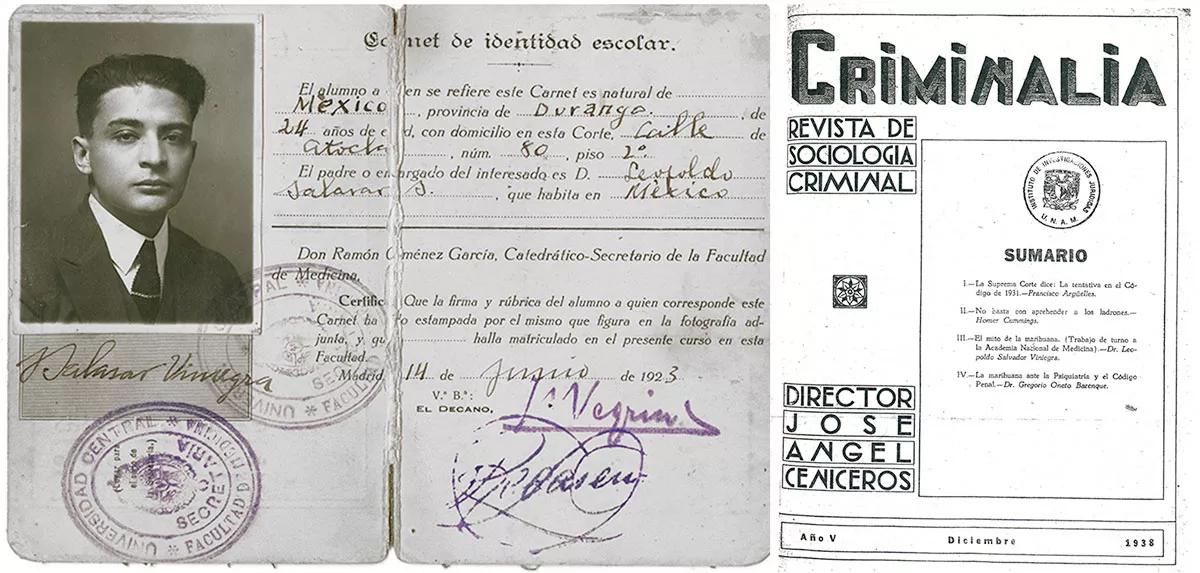 Carnet de identidad escolar.
El alumno a en se refiere este Carnet es natural de
México, provincia de Durango, de
24 años de e d, con domicilio en esta Corte, Calle de
Atocha, núm. 80, piso 2º
El padre o en argado del interesado es D. Leopoldo
Salazar S., que habita en México
Don Ramón ménez García, Catedrático-Secretario de la Facultad
de Medicina,
Certific Que la firma y rúbrica del alumno a quien corresponde este
Carnet ha o estampada por el mismo que figura en la fotografía ad-
junta, y qu halla matriculado en el presente curso en esta
Facultad.
Madrid, 14 de junio de 1923
V.º B.º:
EL DECANO,
Salazar Viniegra
UNIVERSIDAD CENTRAL * FACULTAD DE MEDICINA *
SECRETARIA
CRIMINALIA
REVISTA DE
SOCIOLOGIA
CRIMINAL
INSTITUTO DE INVESTIGACIONES JURIDICAS
U. N. A. M.
SUMARIO
I.—La Suprema Corte dice: La tentativa en el Có-
digo de 1931.—Francisco Argüelles.
II.—No basta con aprehender a los ladrones.—
Homer Cummings.
III.—El mito de la marihuana. (Trabajo de turno a
la Academia Nacional de Medicina).—Dr. Leo-
poldo Salvador Viniegra.
IV.—La marihuana ante la Psiquiatría y el Código
Penal.—Dr. Gregorio Oneto Barenque.
DIRECTOR
JOSE
ANGEL
CENICEROS
Año V Diciembre 1938